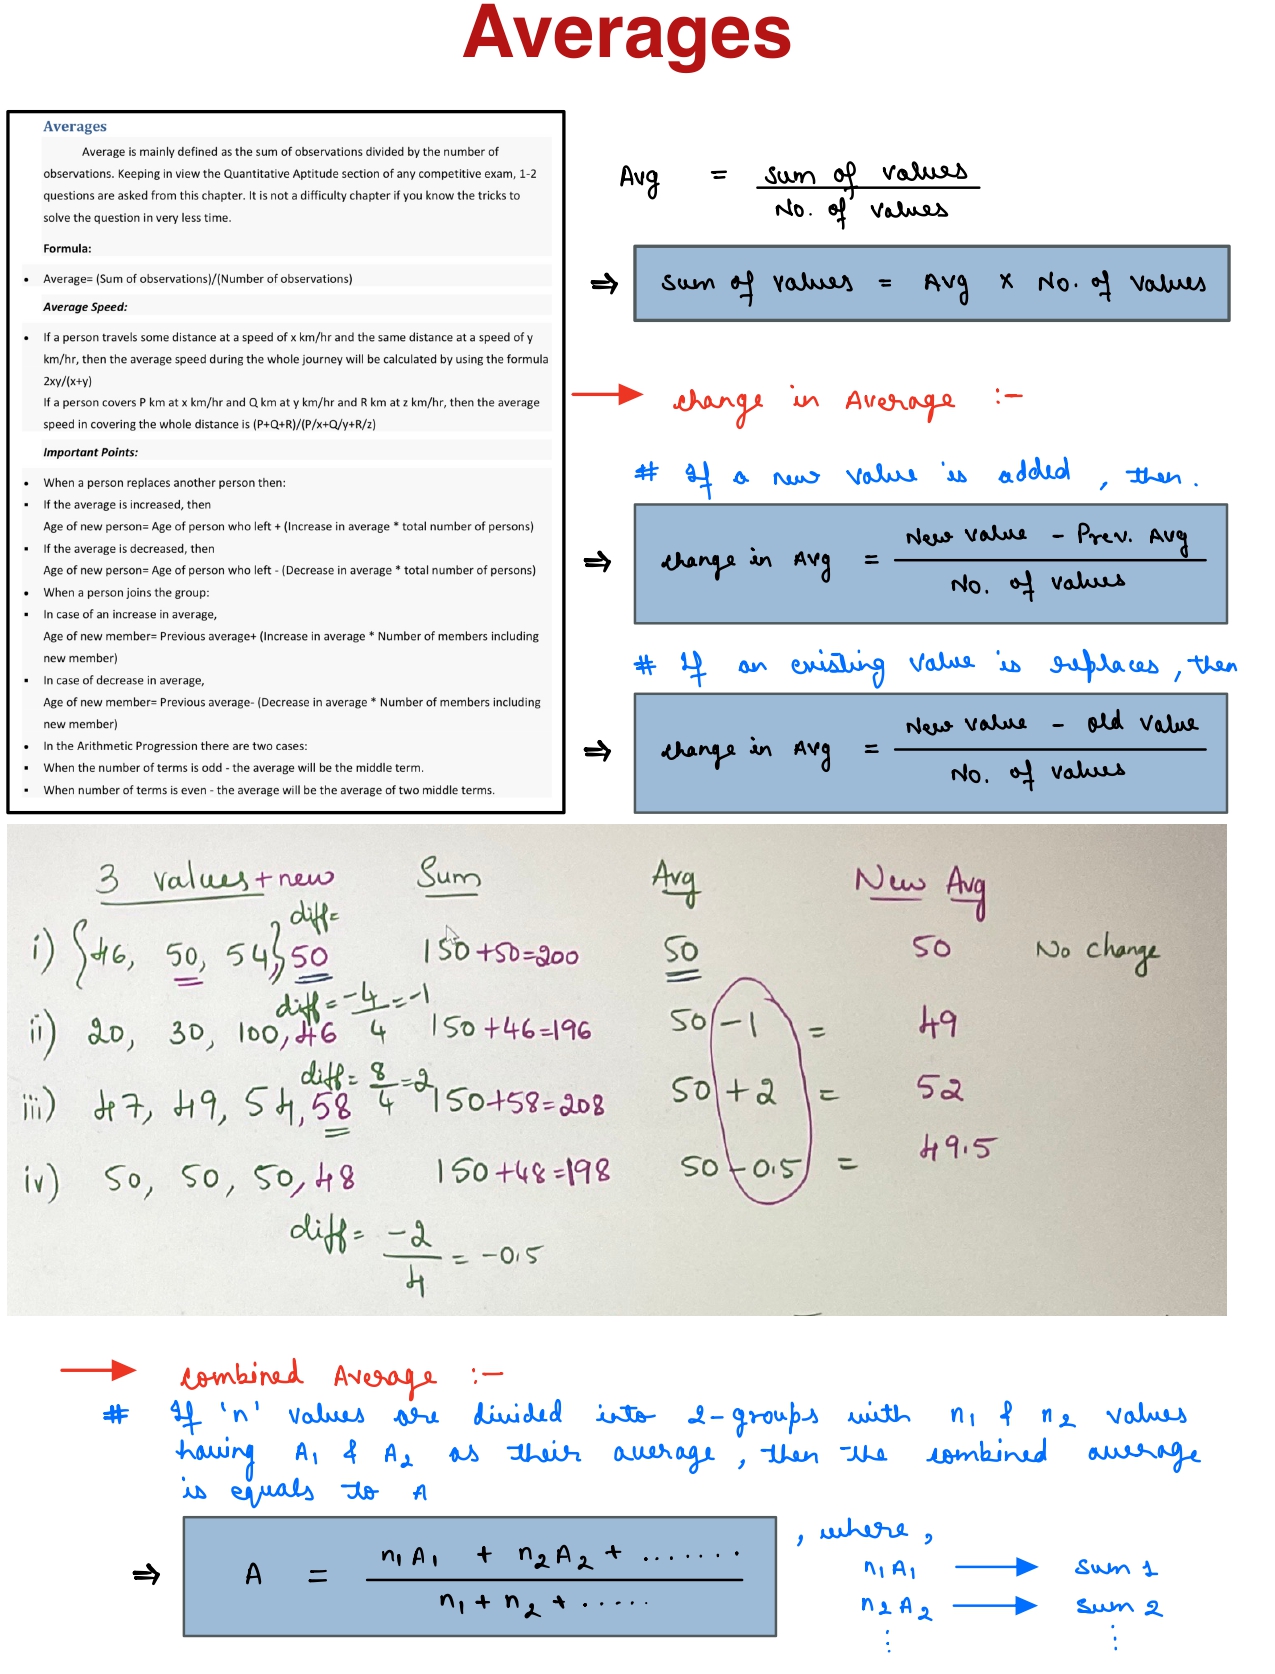 Averages
Averages
Average is mainly defined as the sum of observations divided by the number of
observations. Keeping in view the Quantitative Aptitude section of any competitive exam, 1-2
questions are asked from this chapter. It is not a difficulty chapter if you know the tricks to
solve the question in very less time.
Formula:
• Average= (Sum of observations)/(Number of observations)
Average Speed:
• If a person travels some distance at a speed of x km/hr and the same distance at a speed of y
km/hr, then the average speed during the whole journey will be calculated by using the formula
2xy/(x+y)
If a person covers P km at x km/hr and Q km at y km/hr and R km at z km/hr, then the average
speed in covering the whole distance is (P+Q+R)/(P/x+Q/y+R/z)
Important Points:
• When a person replaces another person then:
▪ If the average is increased, then
Age of new person= Age of person who left + (Increase in average * total number of persons)
▪ If the average is decreased, then
Age of new person= Age of person who left - (Decrease in average * total number of persons)
• When a person joins the group:
▪ In case of an increase in average,
Age of new member= Previous average+ (Increase in average * Number of members including
new member)
▪ In case of decrease in average,
Age of new member= Previous average- (Decrease in average * Number of members including
new member)
• In the Arithmetic Progression there are two cases:
▪ When the number of terms is odd - the average will be the middle term.
▪ When number of terms is even - the average will be the average of two middle terms.
Avg = Sum of values
No. of values
⇒ Sum of values = Avg × No. of values
→ change in Average :-
# If a new value is added, then.
⇒ change in Avg = New value - Prev. Avg
No. of values
# If an existing value is replaces, then
⇒ change in Avg = New value - old value
No. of values
3 values + new Sum Avg New Avg
diff=
i) {46, 50, 54}, 50 150+50=200 50 50 No change
diff = -4/4 = -1
ii) 20, 30, 100, 46 150+46=196 50 -1 = 49
diff= 8/4 = 2
iii) 47, 49, 54, 58 150+58=208 50 +2 = 52
iv) 50, 50, 50, 48 150+48=198 50 -0.5 = 49.5
diff= -2/4 = -0.5
→ combined Average :-
# If 'n' values are divided into 2-groups with n₁ & n₂ values
having A₁ & A₂ as their average, then the combined average
is equals to A
⇒ A = n₁A₁ + n₂A₂ + .......
n₁ + n₂ + .....
, where,
n₁A₁ → Sum 1
n₂A₂ → Sum 2
⋮ ⋮